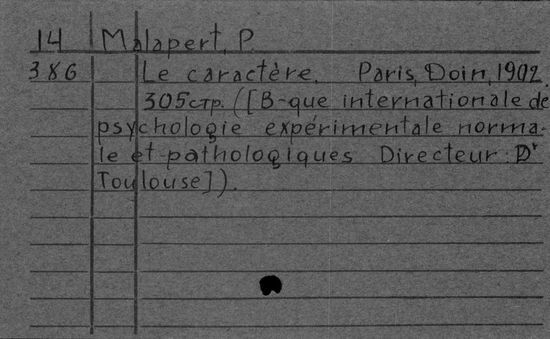 14 Malapert, P.
386 Le caractère. Paris, Doin, 1902.
305стр. ([B-que internationale de
psychologie expérimentale norma-
le et pathologiques Directeur: Dr
Toulouse]).